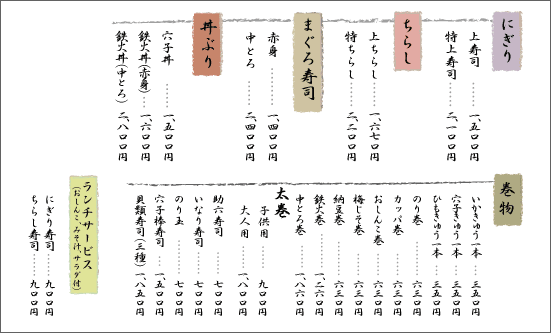 にぎり
上寿司……一、五〇〇円
特上寿司……二、一〇〇円
ちらし
上ちらし……一、六七〇円
特ちらし……二、二〇〇円
まぐろ寿司
赤身……一、四〇〇円
中とろ……二、四〇〇円
丼ぶり
穴子丼……一、五〇〇円
鉄火丼(赤身)……一、六〇〇円
鉄火丼(中とろ)二、八〇〇円
巻物
いかきゅう一本……三五〇円
穴子きゅう一本……三五〇円
ひもきゅう一本……三五〇円
のり巻……六三〇円
カッパ巻……六三〇円
おしんこ巻……六三〇円
梅じそ巻……六三〇円
納豆巻……六三〇円
鉄火巻……一、二六〇円
中とろ巻……一、八六〇円
太巻
子供用……九〇〇円
大人用……一、八〇〇円
助六寿司……七〇〇円
いなり寿司……七〇〇円
のり玉……七〇〇円
穴子棒寿司……一、五〇〇円
貝類寿司(三種)一、八五〇円
ランチサービス
(おしんこ、みそ汁、サラダ付)
にぎり寿司……九〇〇円
ちらし寿司……九〇〇円